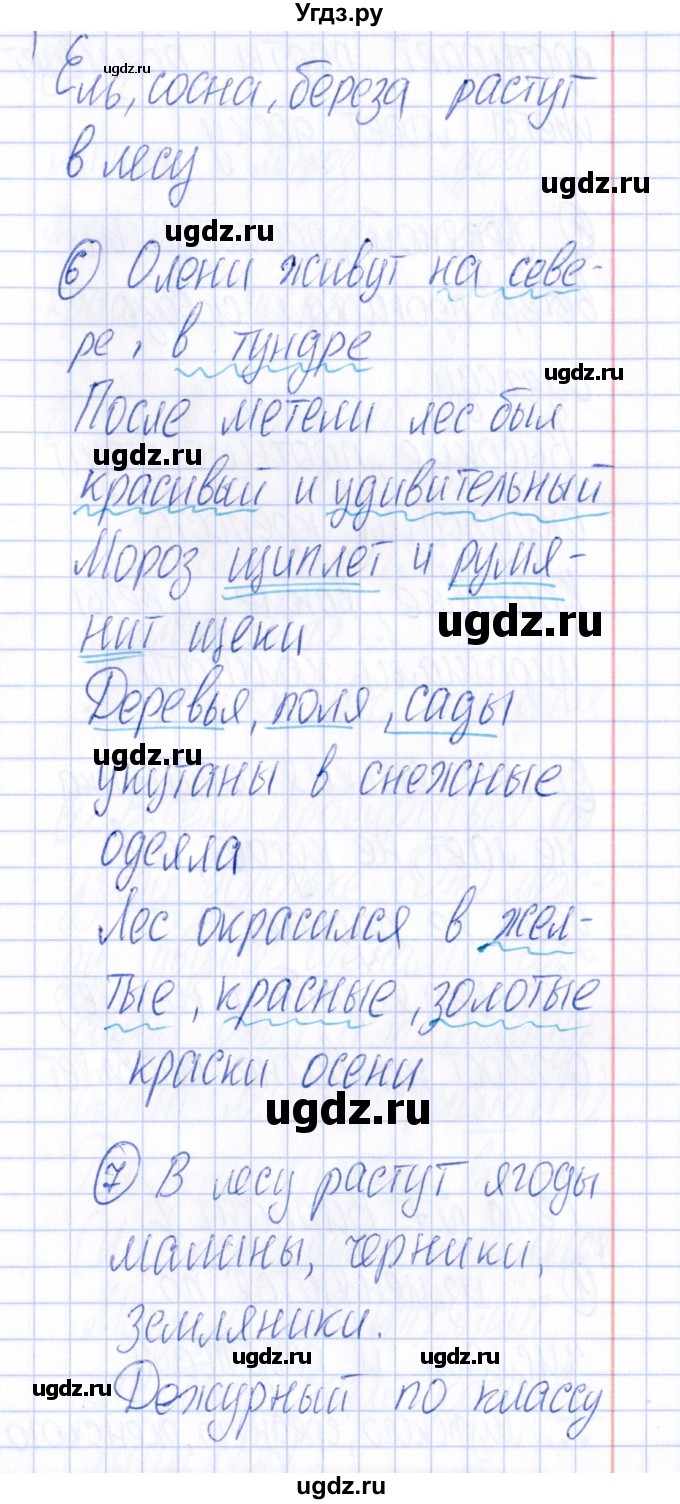 Угдз.ру
ugdz.ru
Ель, сосна, береза растут
в лесу
ugdz.ru
ugdz.ru
6 Олени живут на севе-
ре, в тундре
ugdz.ru
После метели лес был
ugdz.ru
красивый и удивительный
Мороз щиплет и румя-
ugdz.ru
нит щеки
Деревья, поля, сады
ugdz.ru
укутаны в снежные
одеяла
Лес окрасился в жел-
тые, красные, золотые
краски осени
ugdz.ru
7 В лесу растут ягоды
малины, черники,
земляники.
ugdz.ru ugdz.ru
ugdz.ru
Дежурный по классу
ugdz.ru